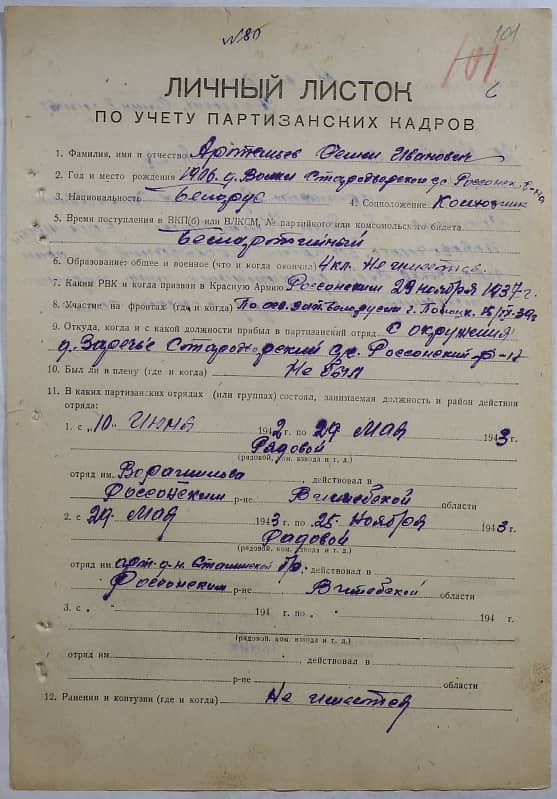 №80
101
101
ЛИЧНЫЙ ЛИСТОК
ПО УЧЕТУ ПАРТИЗАНСКИХ КАДРОВ
1. Фамилия, имя и отчество Артемьев Иванович
2. Год и место рождения 1906 д. Волки с/с Россонск. р-на
3. Национальность Беларус 4. Соцположение Колхозник
5. Время поступления в ВКП(б) или ВЛКСМ, № партийного или комсомольского билета
Беспартийный
6. Образование: общее и военное (что и когда окончал) 4 кл. Не имеется.
7. Каким РВК и когда призван в Красную Армию Россонским 29 ноября 1937 г.
8. Участие на фронтах (где и когда) По г. Полоцк
9. Откуда, когда и с какой должности прибыл в партизанский отряд с окружения
д. Заречье с/с. Россонский р-н
10. Был ли в плену (где и когда) Не был
11. В каких партизанских отрядах (или группах) состоял, занимаемая должность и район действия
отряда:
1. с „10" Июня 1942 г. по 29 Мая 1943 г.
Рядовой
(рядовой, ком. взвода и т. д.)
отряд им. Ворашилова, действовал в
Россонским р-не Витебской области
2. с 29 Мая 1943 г. по 25 Ноября 1943 г.
Рядовой
(рядовой, ком. взвода и т. д.)
отряд им. Сталинской бр., действовал в
Россонским р-не Витебской области
3. с „ " 194 г. по „ " 194 г.
(рядовой, ком. взвода и т. д.)
отряд им. , действовал в
р-не области
12. Ранения и контузии (где и когда) Не имеется